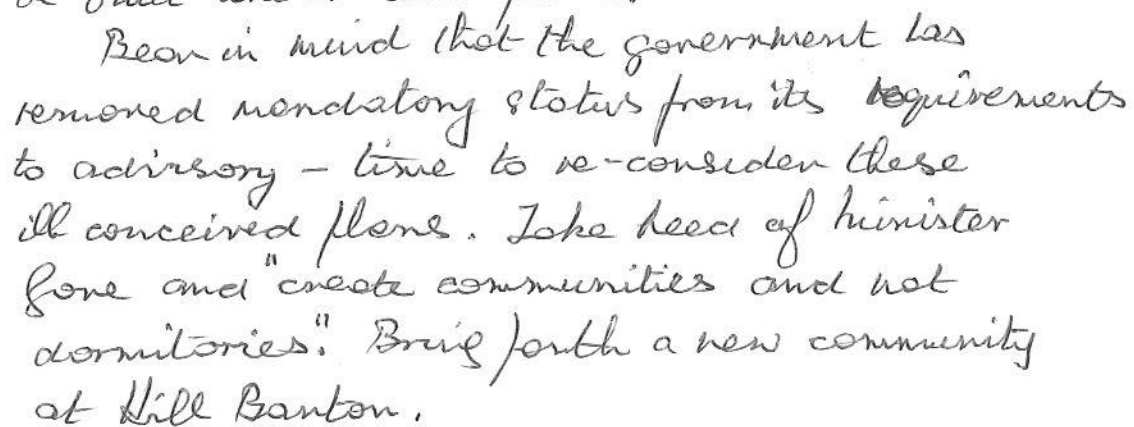 Bear in mind that the government has
removed mandatory status from its requirements
to advisory – time to re-consider these
ill conceived plans. Take heed of Minister
Gove and "create communities and not
dormitories." Bring forth a new community
at Hill Barton.